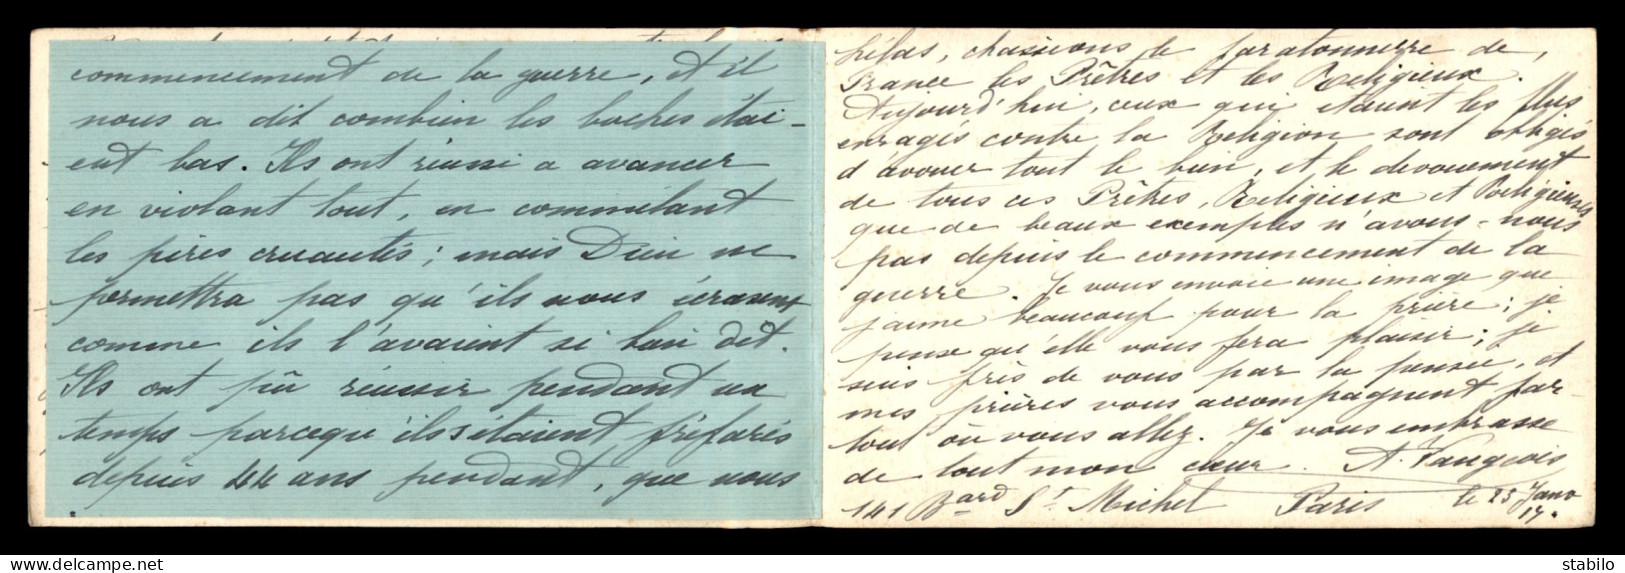 commencement de la guerre, et il
nous a dit combien les boches étai-
ent bas. Ils ont réussi a avancer
en violant tout, en commétant
les pires cruautés; mais Dieu ne
permettra pas qu'ils nous écrasent
comme ils l'avaient si bien dit.
Ils ont pû réussir pendant un
temps parcequ'ils s'étaient préparés
depuis 44 ans pendant, que nous
hélas, chassions le paratonnerre de,
France les Prêtres et les Religieux.
Aujourd'hui, ceux qui étaient les plus
enragés contre la Religion sont obligés
d'avouer tout le bien, et le devouement
de tous ces Prêtres, Religieux et Religieuses
que de beaux exemples n'avons-nous
pas depuis le commencement de la
guerre. Je vous envoie une image que
j'aime beaucoup pour la prière; je
pense qu'elle vous fera plaisir; je
suis près de vous par la pensée, et
mes prières vous accompagnent par-
tout où vous allez. Je vous embrasse
de tout mon cœur. A. Vaugeois
141 Bard St Michel Paris le 23 Janv
17.
delcampe.net
stabilo